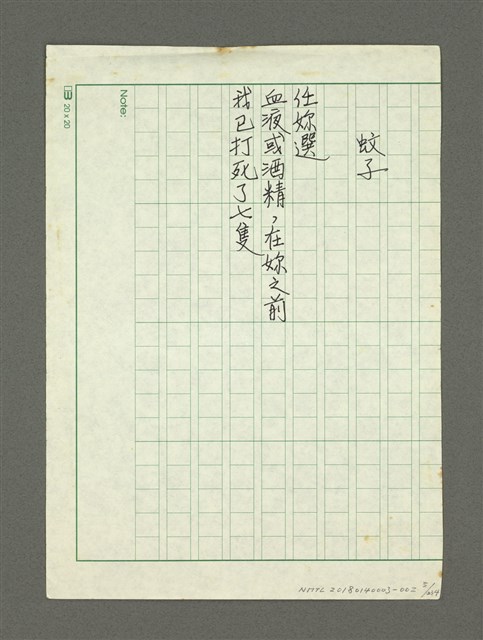 蚊子
任妳選
血液或酒精,在妳之前
我已打死了七隻
Note:
20×20
NMTL 20180140003-002